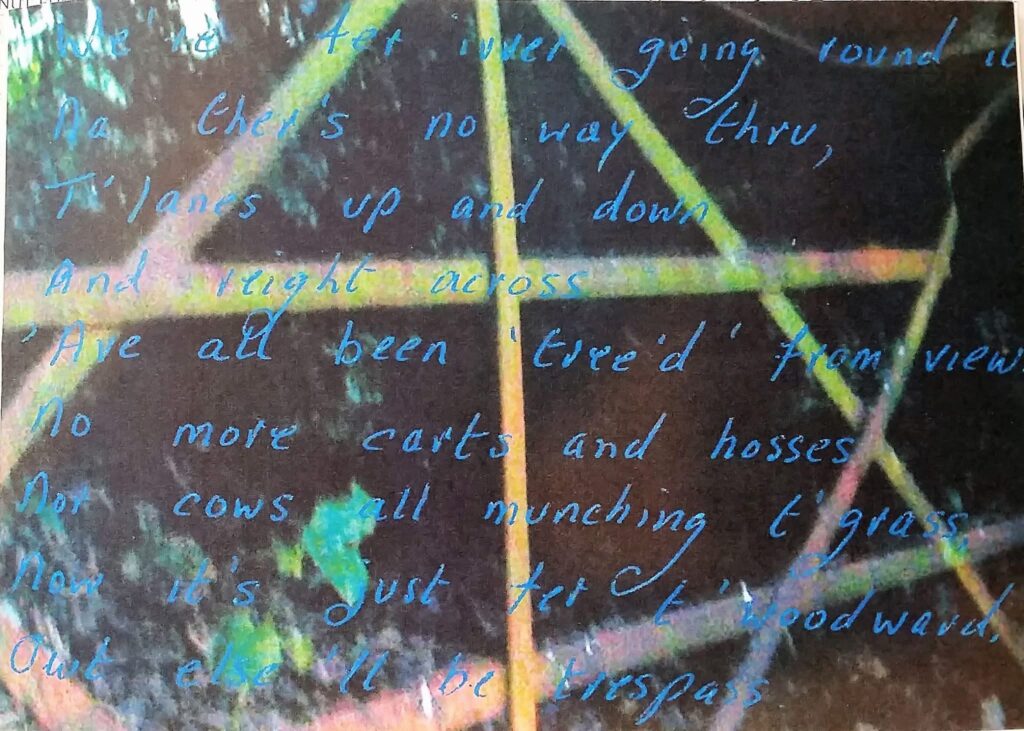 We're fer iver going round it
Na ther's no way thru,
T'lanes up and down
And reight across
'Ave all been 'tree'd' from view.
No more carts and hosses
Nor cows all munching t'grass,
Now it's just fer t'woodward,
Owt else'll be trespass